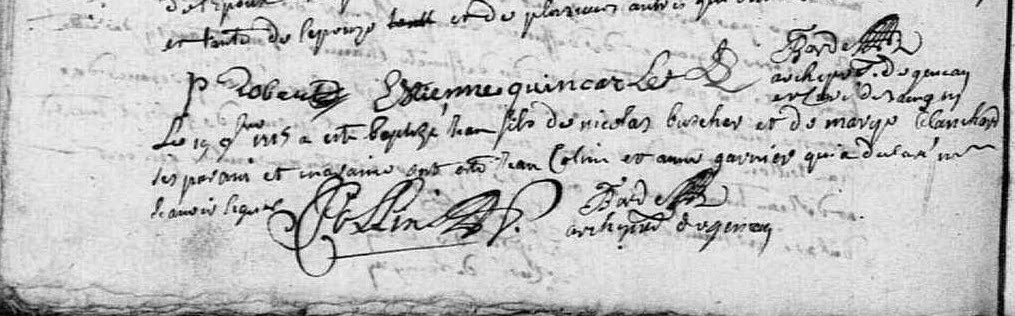 de l'epoux
et tante de lepouze et de plusieurs autres qui
P Robau Estienne quincarlet
Borde
archipretre d'ogencay
et curé de
Le 19 9bre 1715 a esté baptizé Jean fils de nicolas buscher et de marye blanchard
ses parain et maraine ont esté Jean Colin et anne garnier qui a declaré ne
scavoir signer
Collin
Borde
archipretre d'ogencay